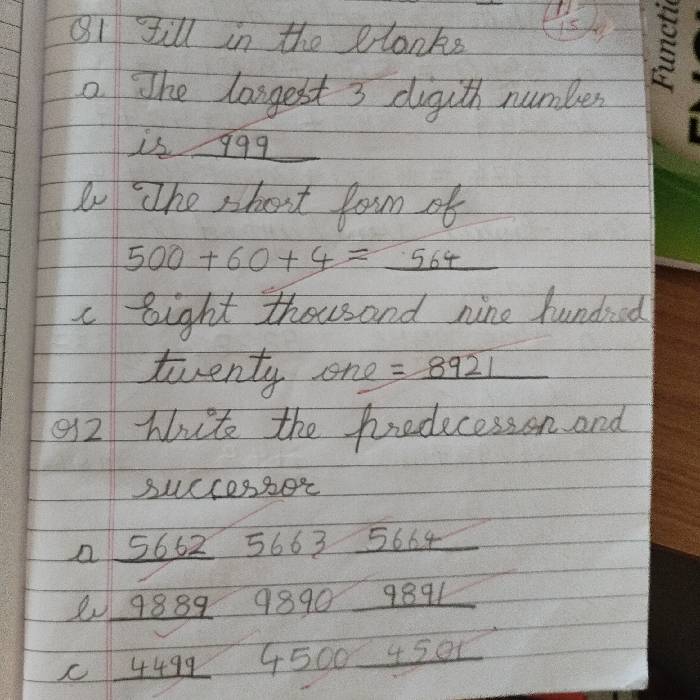 Q1 Fill in the blanks
a The largest 3 digith number
is 999
b The short form of
500 + 60 + 4 = 564
c Eight thousand nine hundred
twenty one = 8921
Q2 Write the predecesson and
successor
a 5662 5663 5664
b 9889 9890 9891
c 4499 4500 4501
Functio